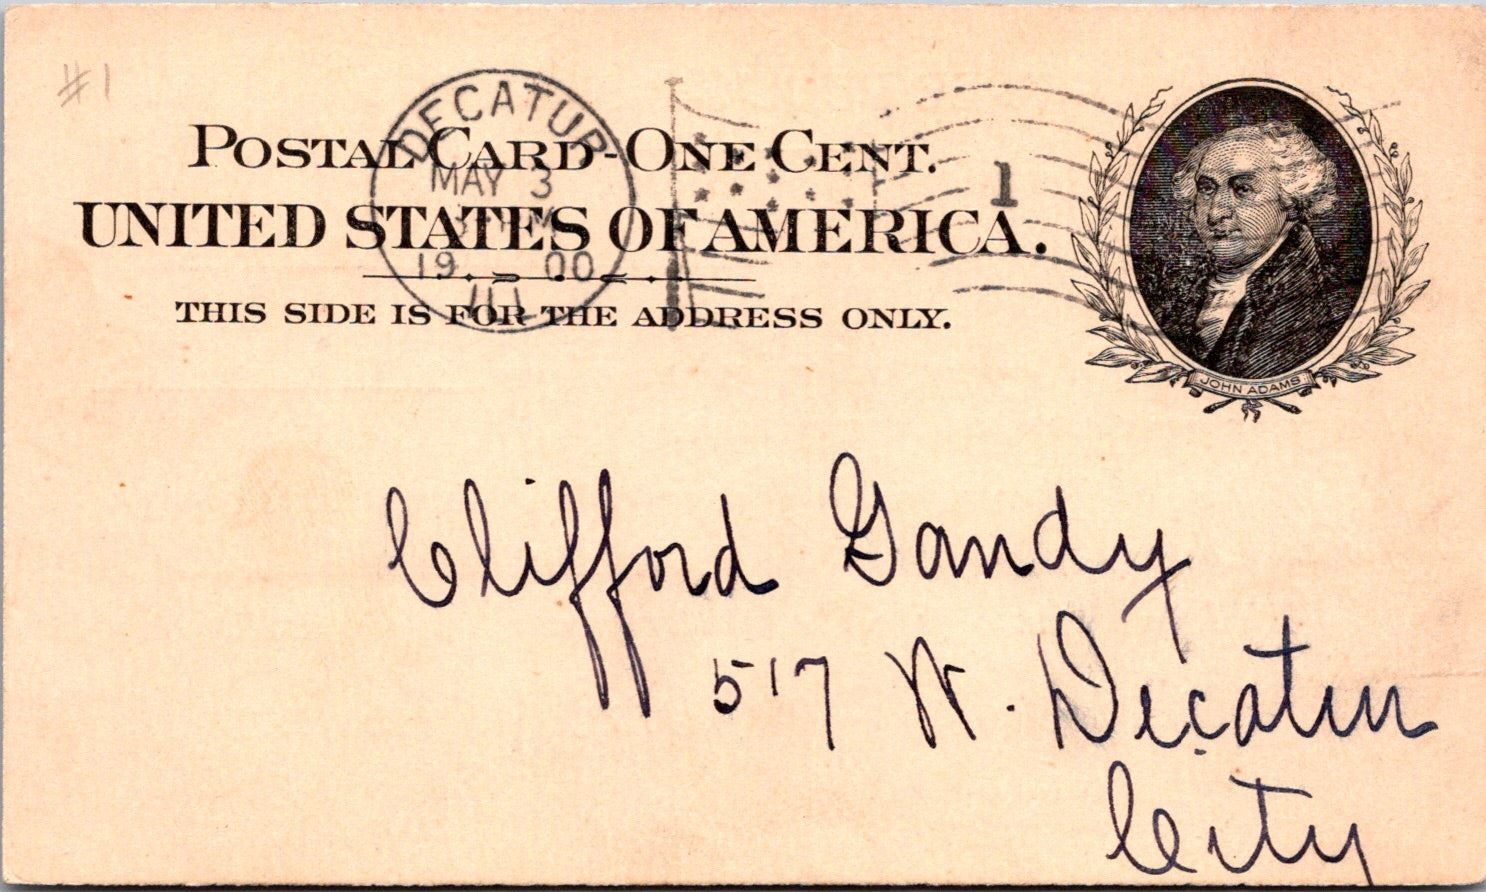 #1
DECATUR
MAY 3
19 00
ILL
1
POSTAL CARD-ONE CENT.
UNITED STATES OF AMERICA.
THIS SIDE IS FOR THE ADDRESS ONLY.
JOHN ADAMS
Clifford Gandy
517 W. Decatur
City